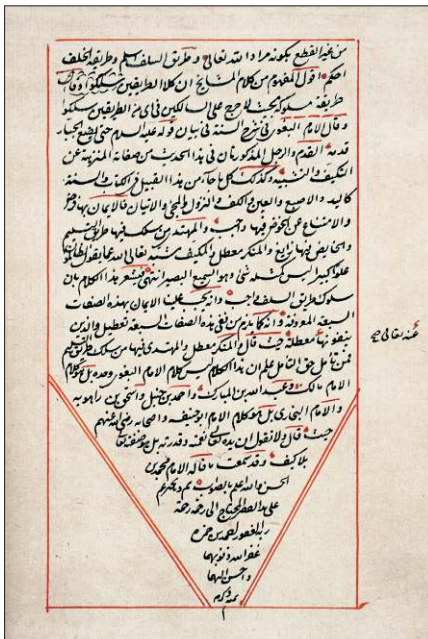 من غير القطع بكونه مراد الله تعالى وطريق السلف اسلم وطريقة الخلف
احكم اقول المفهوم من كلام المشايخ ان كلا الطريقين
طريقة مسلوكة لا حرج على السالكين في اى من الطريقين سلكوا
وقال الامام البغوى في شرح السنة في بيان قوله عليه السلام حتى يضع الجبار
قدمه القدم والرجل المذكوران في هذا الحديث من صفاته المنزهة عن
التكييف والتشبيه وكذلك كل ما جاء من هذا القبيل في الكتاب والسنة
كاليد والاصبع والعين والكف والنزول والمجئ والاتيان فالايمان بها فرض
والامتناع عن الخوض فيها واجب والمهتدى من سلك فيها طريق التسليم
والخايض فيها زايغ والمنكر معطل والمكيف مشبه تعالى الله عما يقول الظالمون
علوا كبيرا ليس كمثله شئ وهو السميع البصير انتهى فيشعر هذا الكلام بان
سلوك طريق السلف واجب وانه يجب علينا الايمان بهذه الصفات
السبعة المعروفة وانه كما يلزم من نفى هذه الصفات السبعة تعطيل والذين
ينفونها معطلة حيث قال والمنكر معطل والمهتدى فيها من سلك طريق التسليم
فمن تأمل حق التأمل علم ان هذا الكلام ليس كلام الامام البغوى وحده بل هو كلام
الامام مالك وعبد الله بن المبارك واحمد بن حنبل واسحق بن راهويه
والامام البخارى بل هو كلام الامام ابو حنيفه واصحابه رضى الله عنهم
حيث قال لا نقول ان يده تعالى نعمته وقدرته بل هو صفته تعالى
بلا كيف وقد سمعت ما قاله الامام محمد بن
الحسن والله اعلم بالصواب
على يد الفقير المحتاج الى رحمة
ربه الغفور احمد بن حمزه
غفر الله ذنوبهما
واحسن اليهما
بمنه وكرمه
عنه تعالى صح